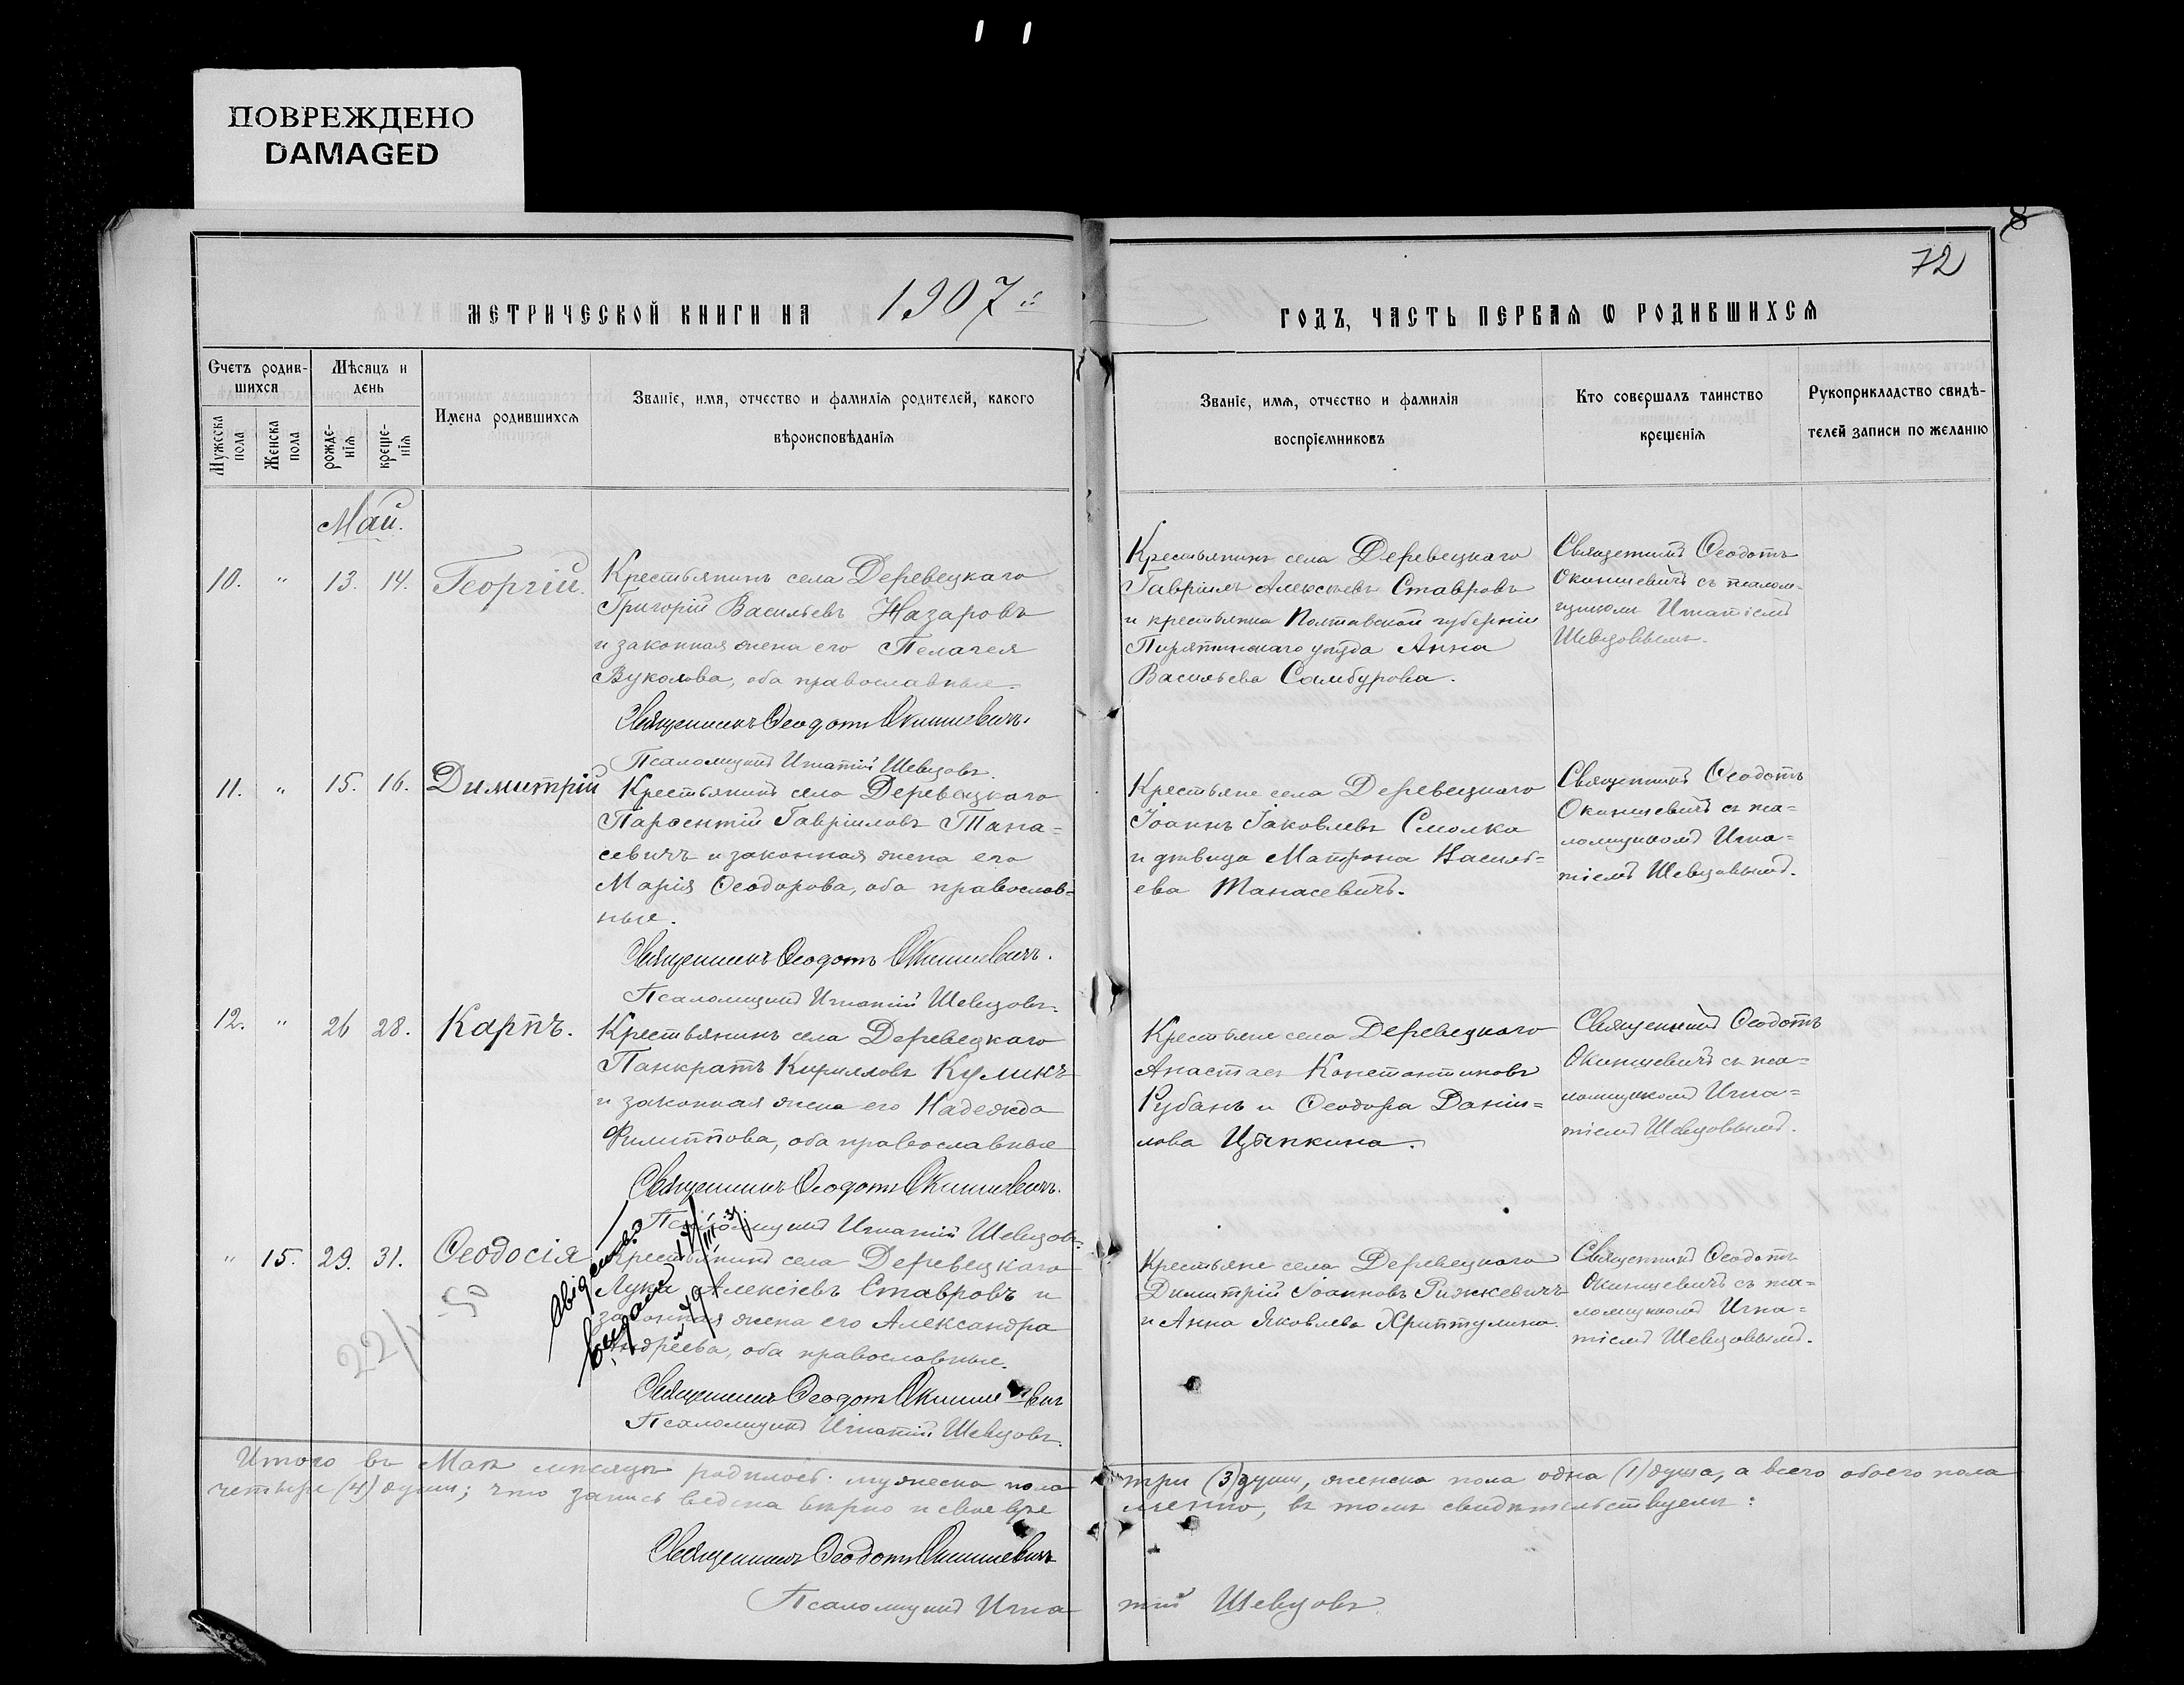 ПОВРЕЖДЕНО
DAMAGED
8
72
МЕТРИЧЕСКОЙ КНИГИ НА 1907й ГОДЪ, ЧАСТЬ ПЕРВАЯ Ѡ РОДИВШИХСЯ
Счетъ родив-
шихся
Мужеска
пола
Женска
пола
Мѣсяцъ и
день
рожде-
нія
креще-
нія
Имена родившихся
Званіе, имя, отчество и фамилія родителей, какого
вѣроисповѣданія
Званіе, имя, отчество и фамилія
воспріемниковъ
Кто совершалъ таинство
крещенія
Рукоприкладство свидѣ-
телей записи по желанію
Май.
10. " 13. 14. Георгій.
Крестьянинъ села Деревецкаго
Григорій Васильевъ Назаровъ
и законная жена его Пелагея
Вуколова, оба православные.
Священникъ Ѳеодотъ Окиншевичъ.
Псаломщикъ Игнатій Шевцовъ.
Крестьянинъ села Деревецкаго
Гавріилъ Алексѣевъ Ставровъ
и крестьянка Полтавской губерніи
Пирятинскаго уѣзда Анна
Васильева Самбурова.
Священникъ Ѳеодотъ
Окиншевичъ съ псалом-
щикомъ Игнатіемъ
Шевцовымъ.
11. " 15. 16. Димитрій
Крестьянинъ села Деревецкаго
Парѳентій Гавріиловъ Тана=
севичъ и законная жена его
Марія Ѳеодорова, оба православ=
ные.
Священникъ Ѳеодотъ Окиншевичъ.
Псаломщикъ Игнатій Шевцовъ.
Крестьяне села Деревецкаго
Іоаннъ Іаковлевъ Смолка
и дѣвица Матрона Василь=
ева Танасевичъ.
Священникъ Ѳеодотъ
Окиншевичъ съ пса=
ломщикомъ Игна=
тіемъ Шевцовымъ.
12. " 26 28. Карпъ.
Крестьянинъ села Деревецкаго
Панкратъ Кирилловъ Куликъ
и законная жена его Надежда
Филиппова, оба православные
Священникъ Ѳеодотъ Окиншевичъ.
Псаломщикъ Игнатій Шевцовъ.
Крестьяне села Деревецкаго
Анастасъ Константиновъ
Рубанъ и Ѳеодора Даніи=
лова Цѣпкина.
Священникъ Ѳеодотъ
Окиншевичъ съ пса=
ломщикомъ Игна=
тіемъ Шевцовымъ.
" 15. 29. 31. Ѳеодосія
Крестьянинъ села Деревецкаго
Лука Алексіевъ Ставровъ и
законная жена его Александра
Андреева, оба православные.
Священникъ Ѳеодотъ Окиншевичъ
Псаломщикъ Игнатій Шевцовъ.
Крестьяне села Деревецкаго
Димитрій Іоанновъ Рижкевичъ
и Анна Яковлева Хриптулина.
Священникъ Ѳеодотъ
Окиншевичъ съ пса=
ломщикомъ Игна=
тіемъ Шевцовымъ.
Итого въ Маѣ мѣсяцѣ родилось: мужеска пола три (3) души, женска пола одна (1) душа, а всего обоего пола
четыре (4) души; что запись ведена вѣрно и своевре менно, въ томъ свидѣтельствуемъ:
Священникъ Ѳеодотъ Окиншевичъ
Псаломщикъ Игна тій Шевцовъ